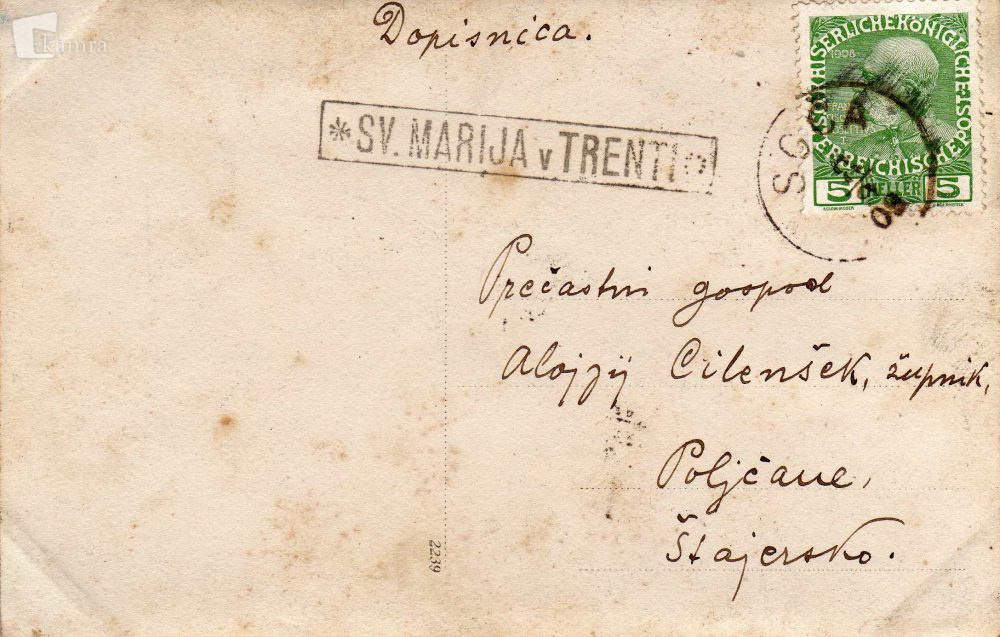 Kamra
Dopisnica.
*SV. MARIJA v TRENTI*
KAISERLICHE KÖNIGLICHE POST
ÖSTERREICHISCHE
1908
5 HELLER 5
SOČA
09
Prečastni gospod
Alojzij Cilenšek, župnik,
Poljčane,
Štajersko.
2239